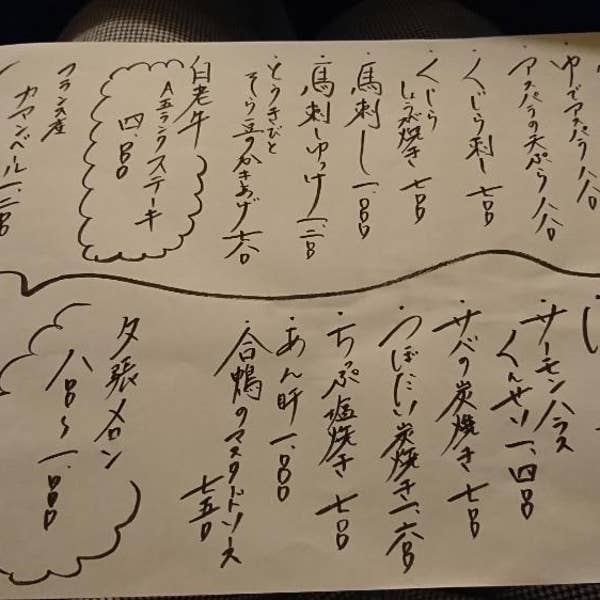 ゆでアスパラ 八八〇
アスパラの天ぷら 八八〇
くじら刺し 七〇〇
くじら
しょうが焼き 七〇〇
馬刺し 一、〇〇〇
馬刺しゆっけ 一、二〇〇
とうきびと
そら豆のかきあげ 七八〇
白老牛
A五ランクステーキ
四、〇〇〇
フランス産
カマンベール 一、二〇〇
サーモンハラス
くんせい 一、四〇〇
サバの炭焼き 七〇〇
つぼだい炭焼き 一、六〇〇
ちっぷ塩焼き 七〇〇
あん肝 一、〇〇〇
合鴨のマスタードソース
七五〇
夕張メロン
八〇〇〜一、〇〇〇